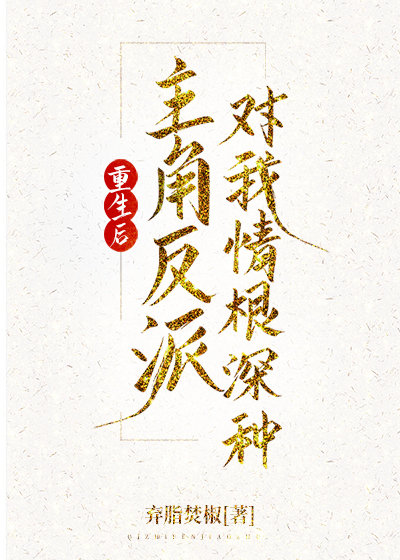 重生后
主角反派
对我情根深种
弃脂焚椒[著]